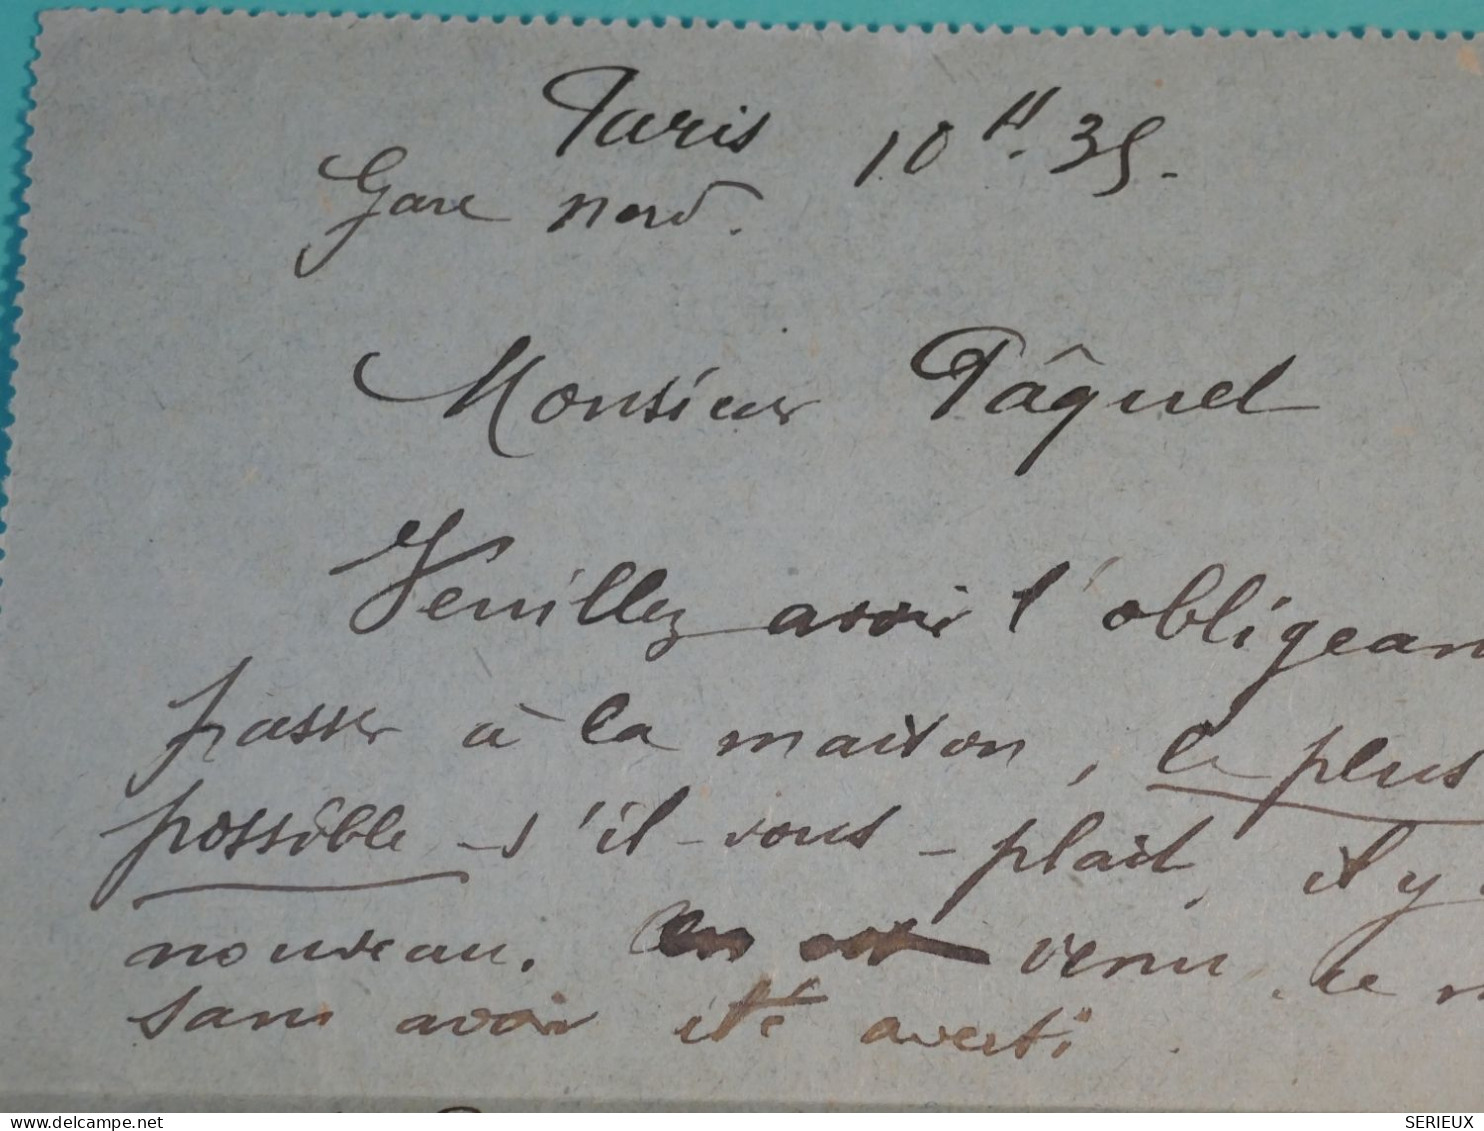 Paris 10 H. 35.
Gare Nord.
Monsieur Pâquel
Veuillez avoir l'obligean
passer à la maison, le plus
possible s'il-vous-plait, il y
nouveau. On est venu ce
sans avoir été averti.
delcampe.com
SERIEUX